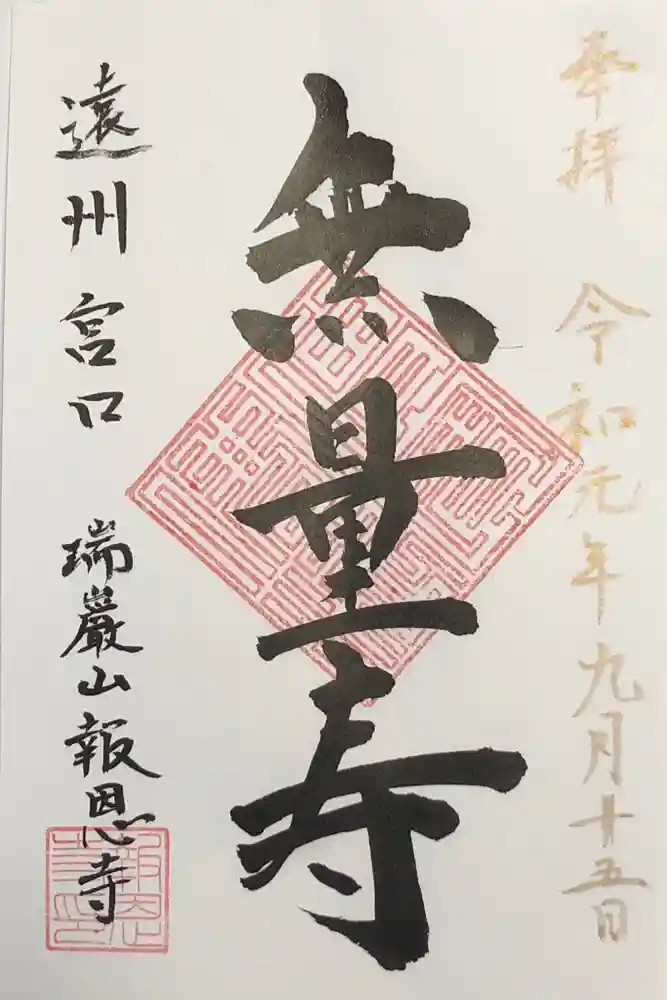 奉拝 令和元年九月十五日
無量寿
遠州 宮口 瑞巌山報恩寺